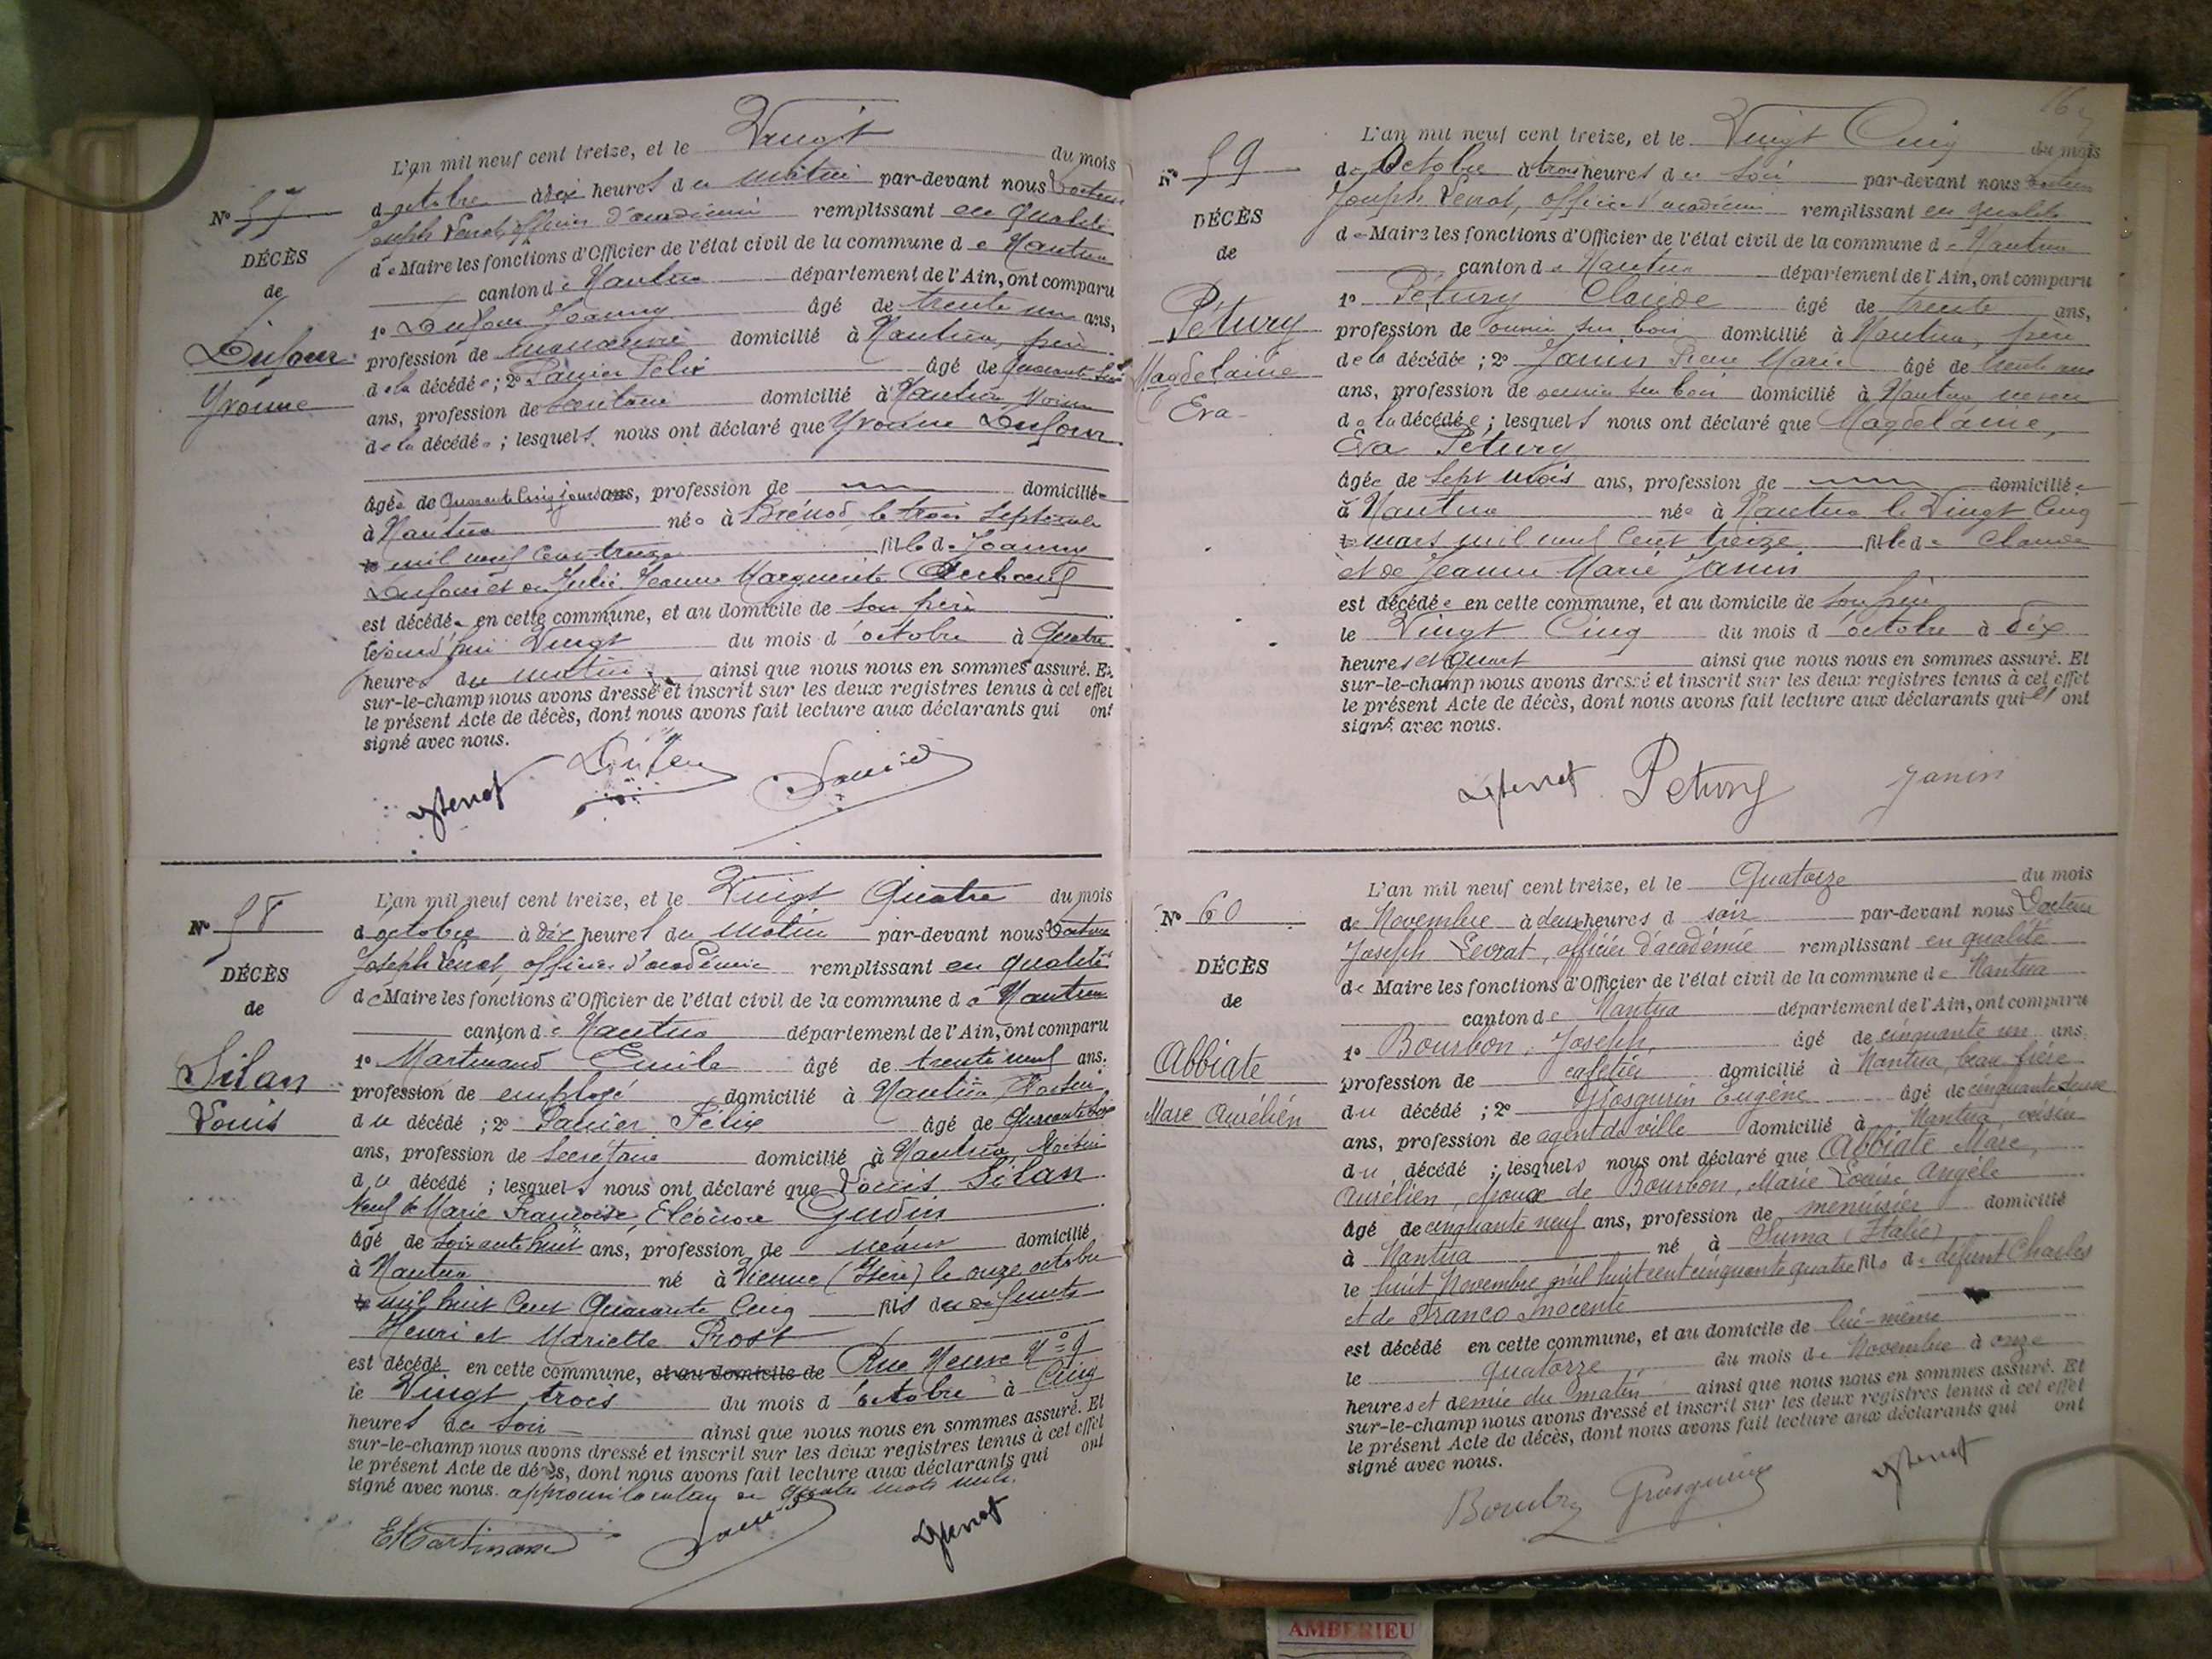 L'an mil neuf cent treize, et le Vingt du mois
d'octobre à dix heures du matin par-devant nous Docteur
Joseph Levrat, officier d'académie remplissant en qualité
de Maire les fonctions d'Officier de l'état civil de la commune de Nantua
canton de Nantua département de l'Ain, ont comparu
1° Dufour Joanny âgé de trente un ans,
profession de manœuvre domicilié à Nantua, père
de la décédée ; 2° Panier Félix âgé de quarante
ans, profession de Secrétaire domicilié à Nantua voisin
de la décédée ; lesquels nous ont déclaré que Yvonne Dufour
âgée de Quarante Cinq jours ans, profession de domiciliée
à Nantua née à Brénod, le trois Septembre
le mil neuf Cent treize fille de Joanny
Dufour et de Julie Jeanne Marguerite
est décédée en cette commune, et au domicile de son père
le jourd'hui Vingt du mois d'octobre à Quatre
heures du matin ainsi que nous nous en sommes assuré. Et
sur-le-champ nous avons dressé et inscrit sur les deux registres tenus à cet effet
le présent Acte de décès, dont nous avons fait lecture aux déclarants qui ont
signé avec nous.
N° 57
DÉCÈS
de
Dufour
Yvonne
L'an mil neuf cent treize, et le Vingt Quatre du mois
d'octobre à dix heures du Matin par-devant nous Docteur
Joseph Levrat, officier d'académie remplissant en qualité
de Maire les fonctions d'Officier de l'état civil de la commune de Nantua
canton de Nantua département de l'Ain, ont comparu
1° Martinand Emile âgé de trente neuf ans.
profession de employé domicilié à Nantua, Voisin
du décédé ; 2° Panier Félix âgé de Quarante
ans, profession de Secrétaire domicilié à Nantua, Voisin
du décédé ; lesquels nous ont déclaré que Louis Silan
Veuf de Marie Françoise, Eléonore Gudin
âgé de soixante huit ans, profession de néant domicilié
à Nantua né à Vienne (Isère) le onze octobre
le mil huit Cent Quarante Cinq fils de défunts
Henri et Mariette Prost
est décédé en cette commune, et au domicile de Rue Neuve N° 9
le Vingt trois du mois d'octobre à Cinq
heures du Soir ainsi que nous nous en sommes assuré. Et
sur-le-champ nous avons dressé et inscrit sur les deux registres tenus à cet effet
le présent Acte de décès, dont nous avons fait lecture aux déclarants qui ont
signé avec nous. quatre mots nuls.
E Martinand
N° 58
DÉCÈS
de
Silan
Louis
L'an mil neuf cent treize, et le Vingt Cinq du mois
de Octobre à trois heures du Soir par-devant nous Docteur
Joseph Levrat, officier d'académie remplissant en qualité
de Maire les fonctions d'Officier de l'état civil de la commune de Nantua
canton de Nantua département de l'Ain, ont comparu
1° Pétury Claude âgé de trente ans,
profession de ouvrier sur bois domicilié à Nantua, père
de la décédée ; 2° Janin Pierre Marie âgé de trente
ans, profession de ouvrier sur bois domicilié à Nantua
de la décédée ; lesquels nous ont déclaré que Magdelaine,
Eva Pétury
âgée de Sept mois ans, profession de domiciliée
à Nantua née à Nantua le Vingt Cinq
le mars mil neuf Cent treize fille de Claude
et de Jeanne Marie Janin
est décédée en cette commune, et au domicile de son père
le Vingt Cinq du mois d'octobre à dix
heures et quart ainsi que nous nous en sommes assuré. Et
sur-le-champ nous avons dressé et inscrit sur les deux registres tenus à cet effet
le présent Acte de décès, dont nous avons fait lecture aux déclarants qui ont
signé avec nous.
Petury Janin
N° 59
DÉCÈS
de
Pétury
Magdelaine
Eva
L'an mil neuf cent treize, et le Quatorze du mois
de Novembre à deux heures d soir par-devant nous Docteur
Joseph Levrat, officier d'académie remplissant en qualité
de Maire les fonctions d'Officier de l'état civil de la commune de Nantua
canton de Nantua département de l'Ain, ont comparu
1° Bourbon, Joseph, âgé de cinquante un ans
profession de cafetier domicilié à Nantua, beau frère
du décédé ; 2° Grosgurin Eugène âgé de cinquante
ans, profession de agent de ville domicilié à Nantua, voisin
du décédé ; lesquels nous ont déclaré que Abbiate Marc,
Aurélien, époux de Bourbon, Marie Louise Angèle
âgé de cinquante neuf ans, profession de menuisier domicilié
à Nantua né à Suma (Italie)
le huit Novembre mil huit cent cinquante quatre fils de défunt Charles
et de Franco Inocente
est décédé en cette commune, et au domicile de lui-même
le quatorze du mois de Novembre à onze
heures et demie du matin ainsi que nous nous en sommes assuré. Et
sur-le-champ nous avons dressé et inscrit sur les deux registres tenus à cet effet
le présent Acte de décès, dont nous avons fait lecture aux déclarants qui ont
signé avec nous.
Grosgurin
N° 60
DÉCÈS
de
Abbiate
Marc Aurélien
AMBERIEU